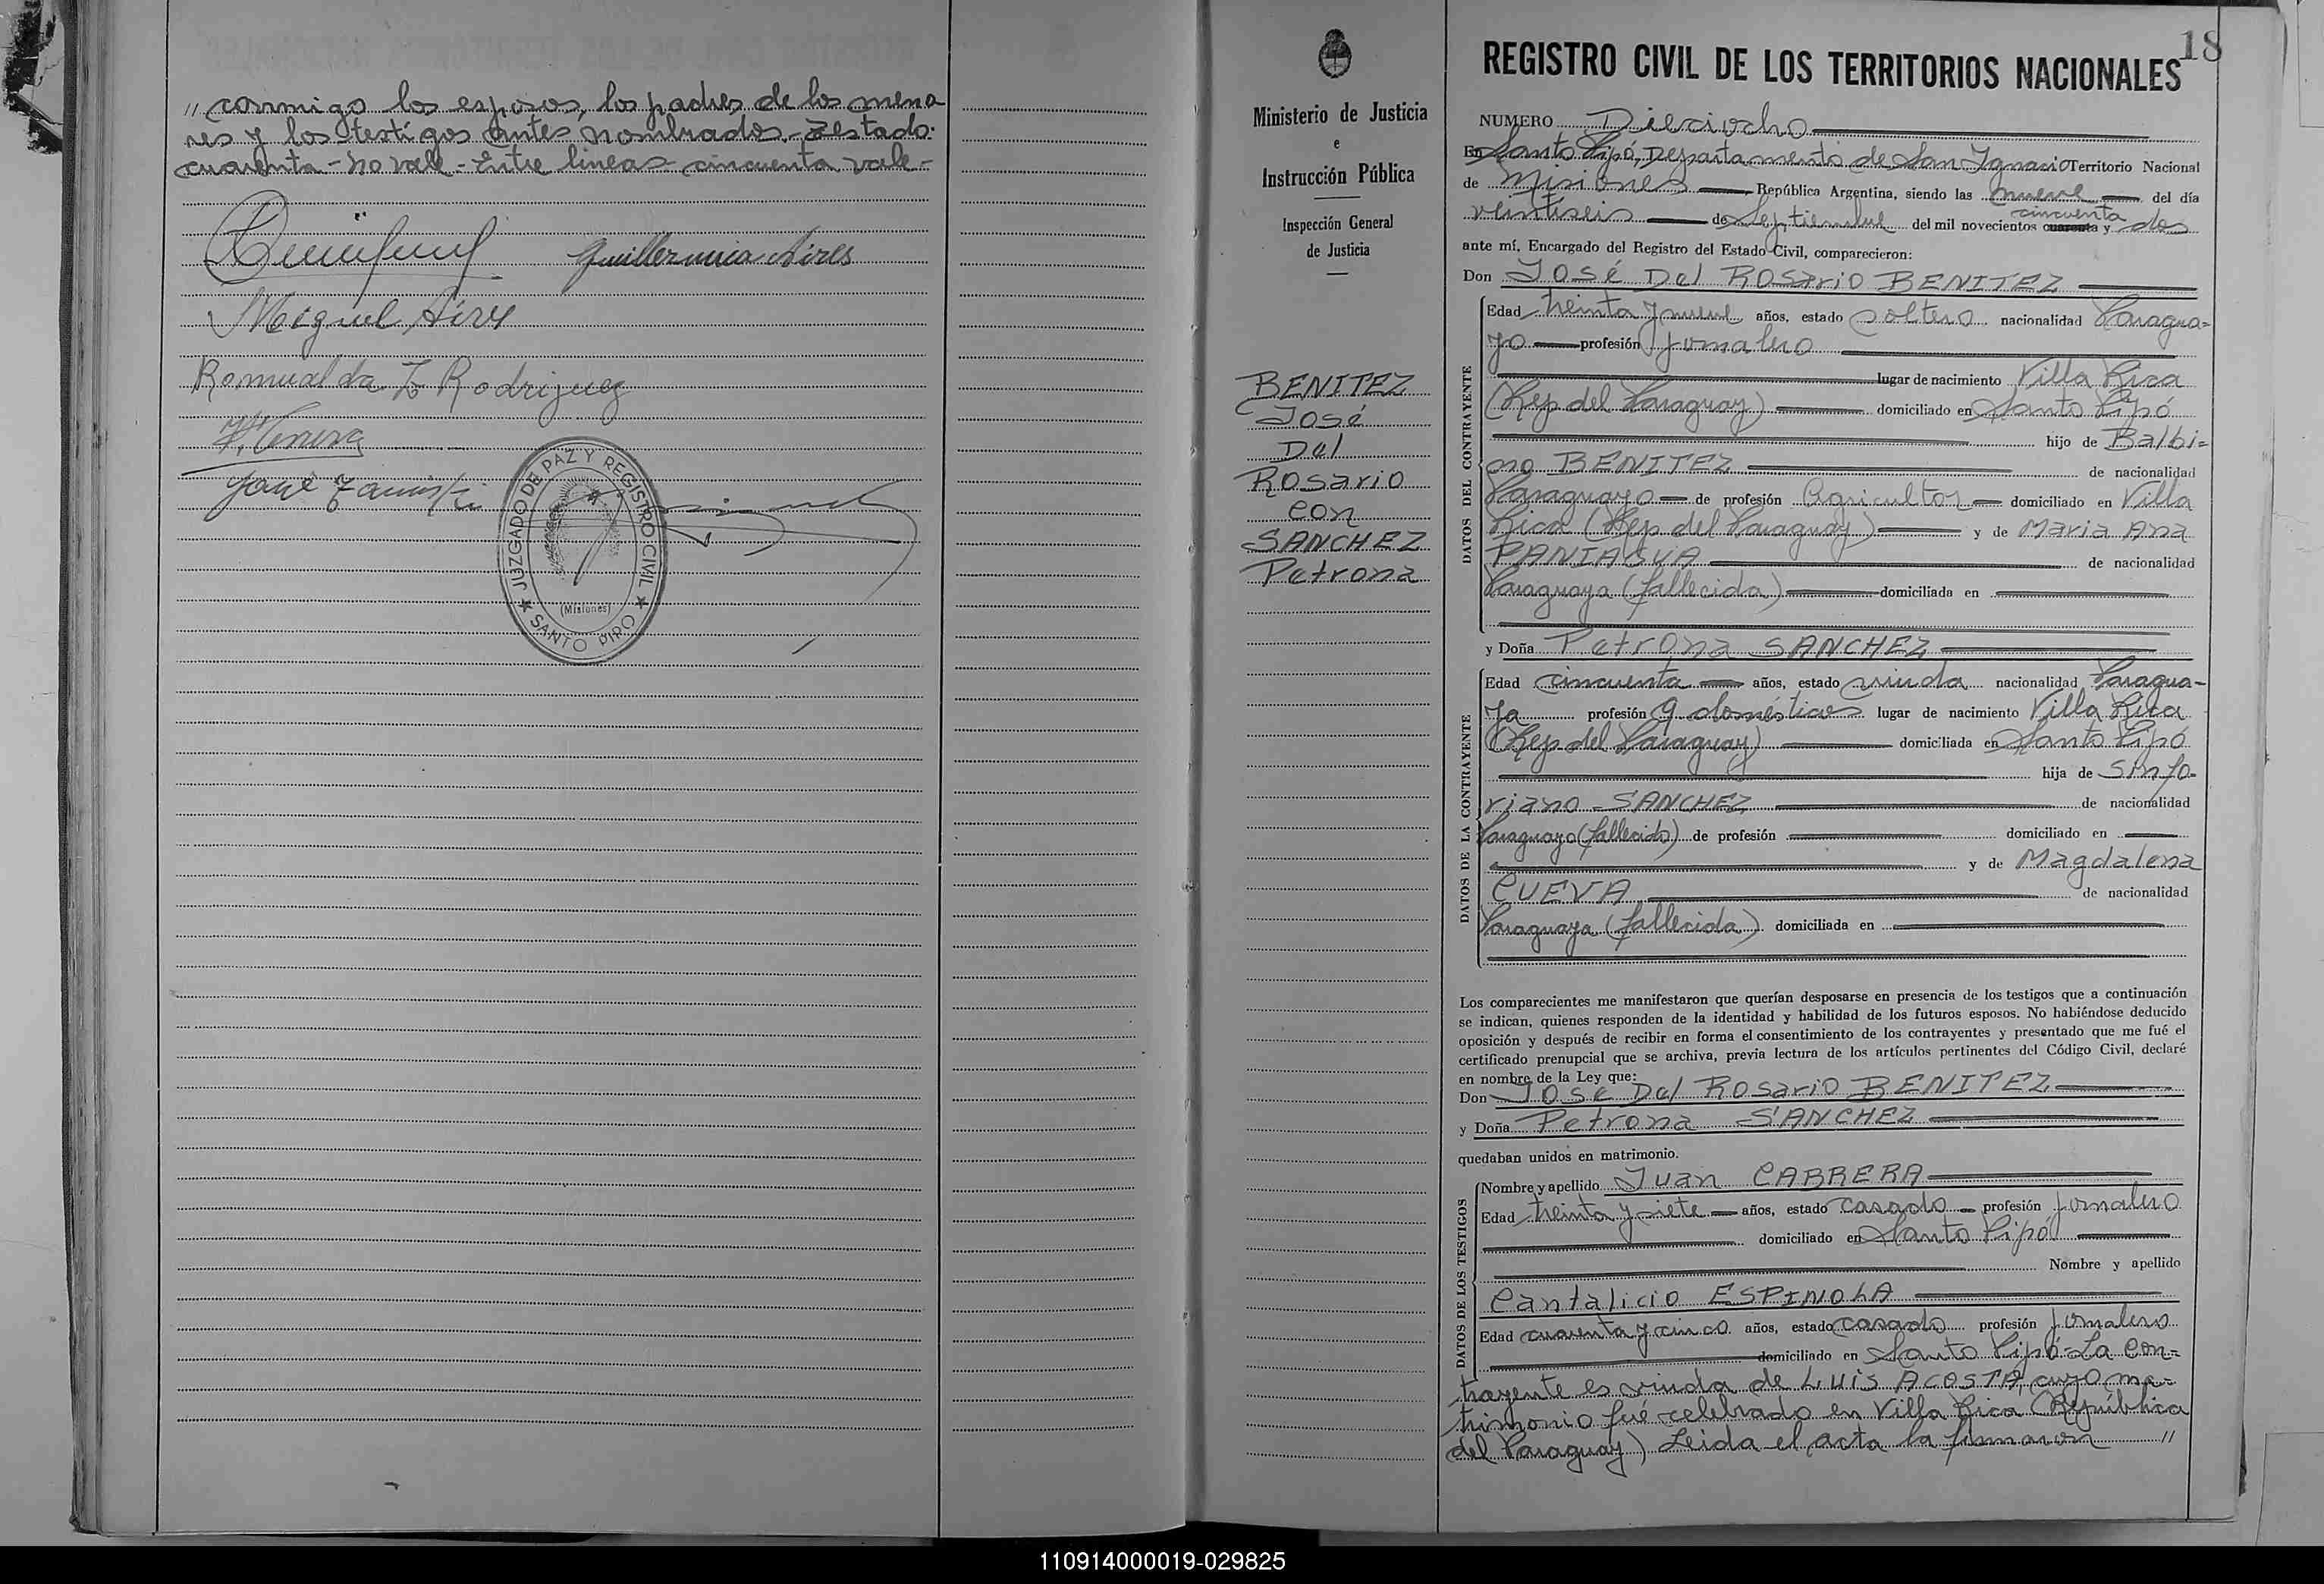 " conmigo los esposos, los padres de los meno
res y los testigos antes nombrados.- Testado:
cuarenta - no vale - Entre lineas - cincuenta vale -
Guillermina Aires
Miguel Aires
Romualda Z Rodriguez
José
JUZGADO DE PAZ Y REGISTRO CIVIL
(Misiones)
★ SANTO PIPO ★
18
Ministerio de Justicia
e
Instrucción Pública
Inspección General
de Justicia
BENITEZ
José
Del
Rosario
con
SANCHEZ
Petrona
REGISTRO CIVIL DE LOS TERRITORIOS NACIONALES
NUMERO Dieciocho
En Santo Pipó, Departamento de San Ignacio Territorio Nacional
de Misiones República Argentina, siendo las nueve del día
cincuenta
veintiseis de Septiembre del mil novecientos cuarenta y dos
ante mí, Encargado del Registro del Estado Civil, comparecieron:
Don José Del Rosario BENITEZ
DATOS DEL CONTRAYENTE
Edad treinta y nueve años, estado soltero nacionalidad Paragua=
yo profesión jornalero
lugar de nacimiento Villa Rica
(Rep. del Paraguay) domiciliado en Santo Pipó
hijo de Balbi=
no BENITEZ de nacionalidad
Paraguayo de profesión Agricultor domiciliado en Villa
Rica (Rep. del Paraguay) y de Maria Ana
PANIAGUA de nacionalidad
Paraguaya (fallecida) domiciliada en
y Doña Petrona SANCHEZ
DATOS DE LA CONTRAYENTE
Edad cincuenta años, estado viuda nacionalidad Paragua-
ya profesión q. domésticos lugar de nacimiento Villa Rica
(Rep. del Paraguay) domiciliada en Santo Pipó
hija de Sinfo-
riano SANCHEZ de nacionalidad
Paraguayo (fallecido) de profesión domiciliado en
y de Magdalena
CUEVA de nacionalidad
Paraguaya (fallecida) domiciliada en
Los comparecientes me manifestaron que querían desposarse en presencia de los testigos que a continuación
se indican, quienes responden de la identidad y habilidad de los futuros esposos. No habiéndose deducido
oposición y después de recibir en forma el consentimiento de los contrayentes y presentado que me fué el
certificado prenupcial que se archiva, previa lectura de los artículos pertinentes del Código Civil, declaré
en nombre de la Ley que:
Don José Del Rosario BENITEZ
y Doña Petrona SANCHEZ
quedaban unidos en matrimonio.
DATOS DE LOS TESTIGOS
Nombre y apellido Juan CABRERA
Edad treinta y siete años, estado casado profesión jornalero
domiciliado en Santo Pipó
Nombre y apellido
Cantalicio ESPINOLA
Edad cuarenta y cinco años, estado casado profesión jornalero
domiciliado en Santo Pipó - La con=
trayente es viuda de LUIS ACOSTA, cuyo ma=
trimonio fué celebrado en Villa Rica (República
del Paraguay) Leida el acta la firmaron "
110914000019-029825